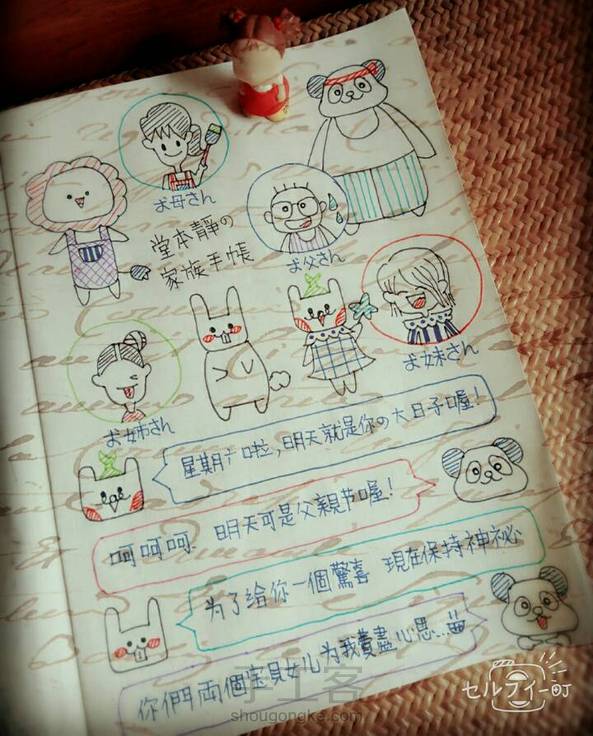 お母さん
堂本静の
家族手帳
お父さん
お妹さん
お姉さん
星期六啦,明天就是你の大日子喔!
呵呵呵. 明天可是父親节喔!
为了给你一個驚喜 現在保持神祕
你們兩個宝貝女儿为我費盡心思...
手工客
shougongke.com
セルフィー町